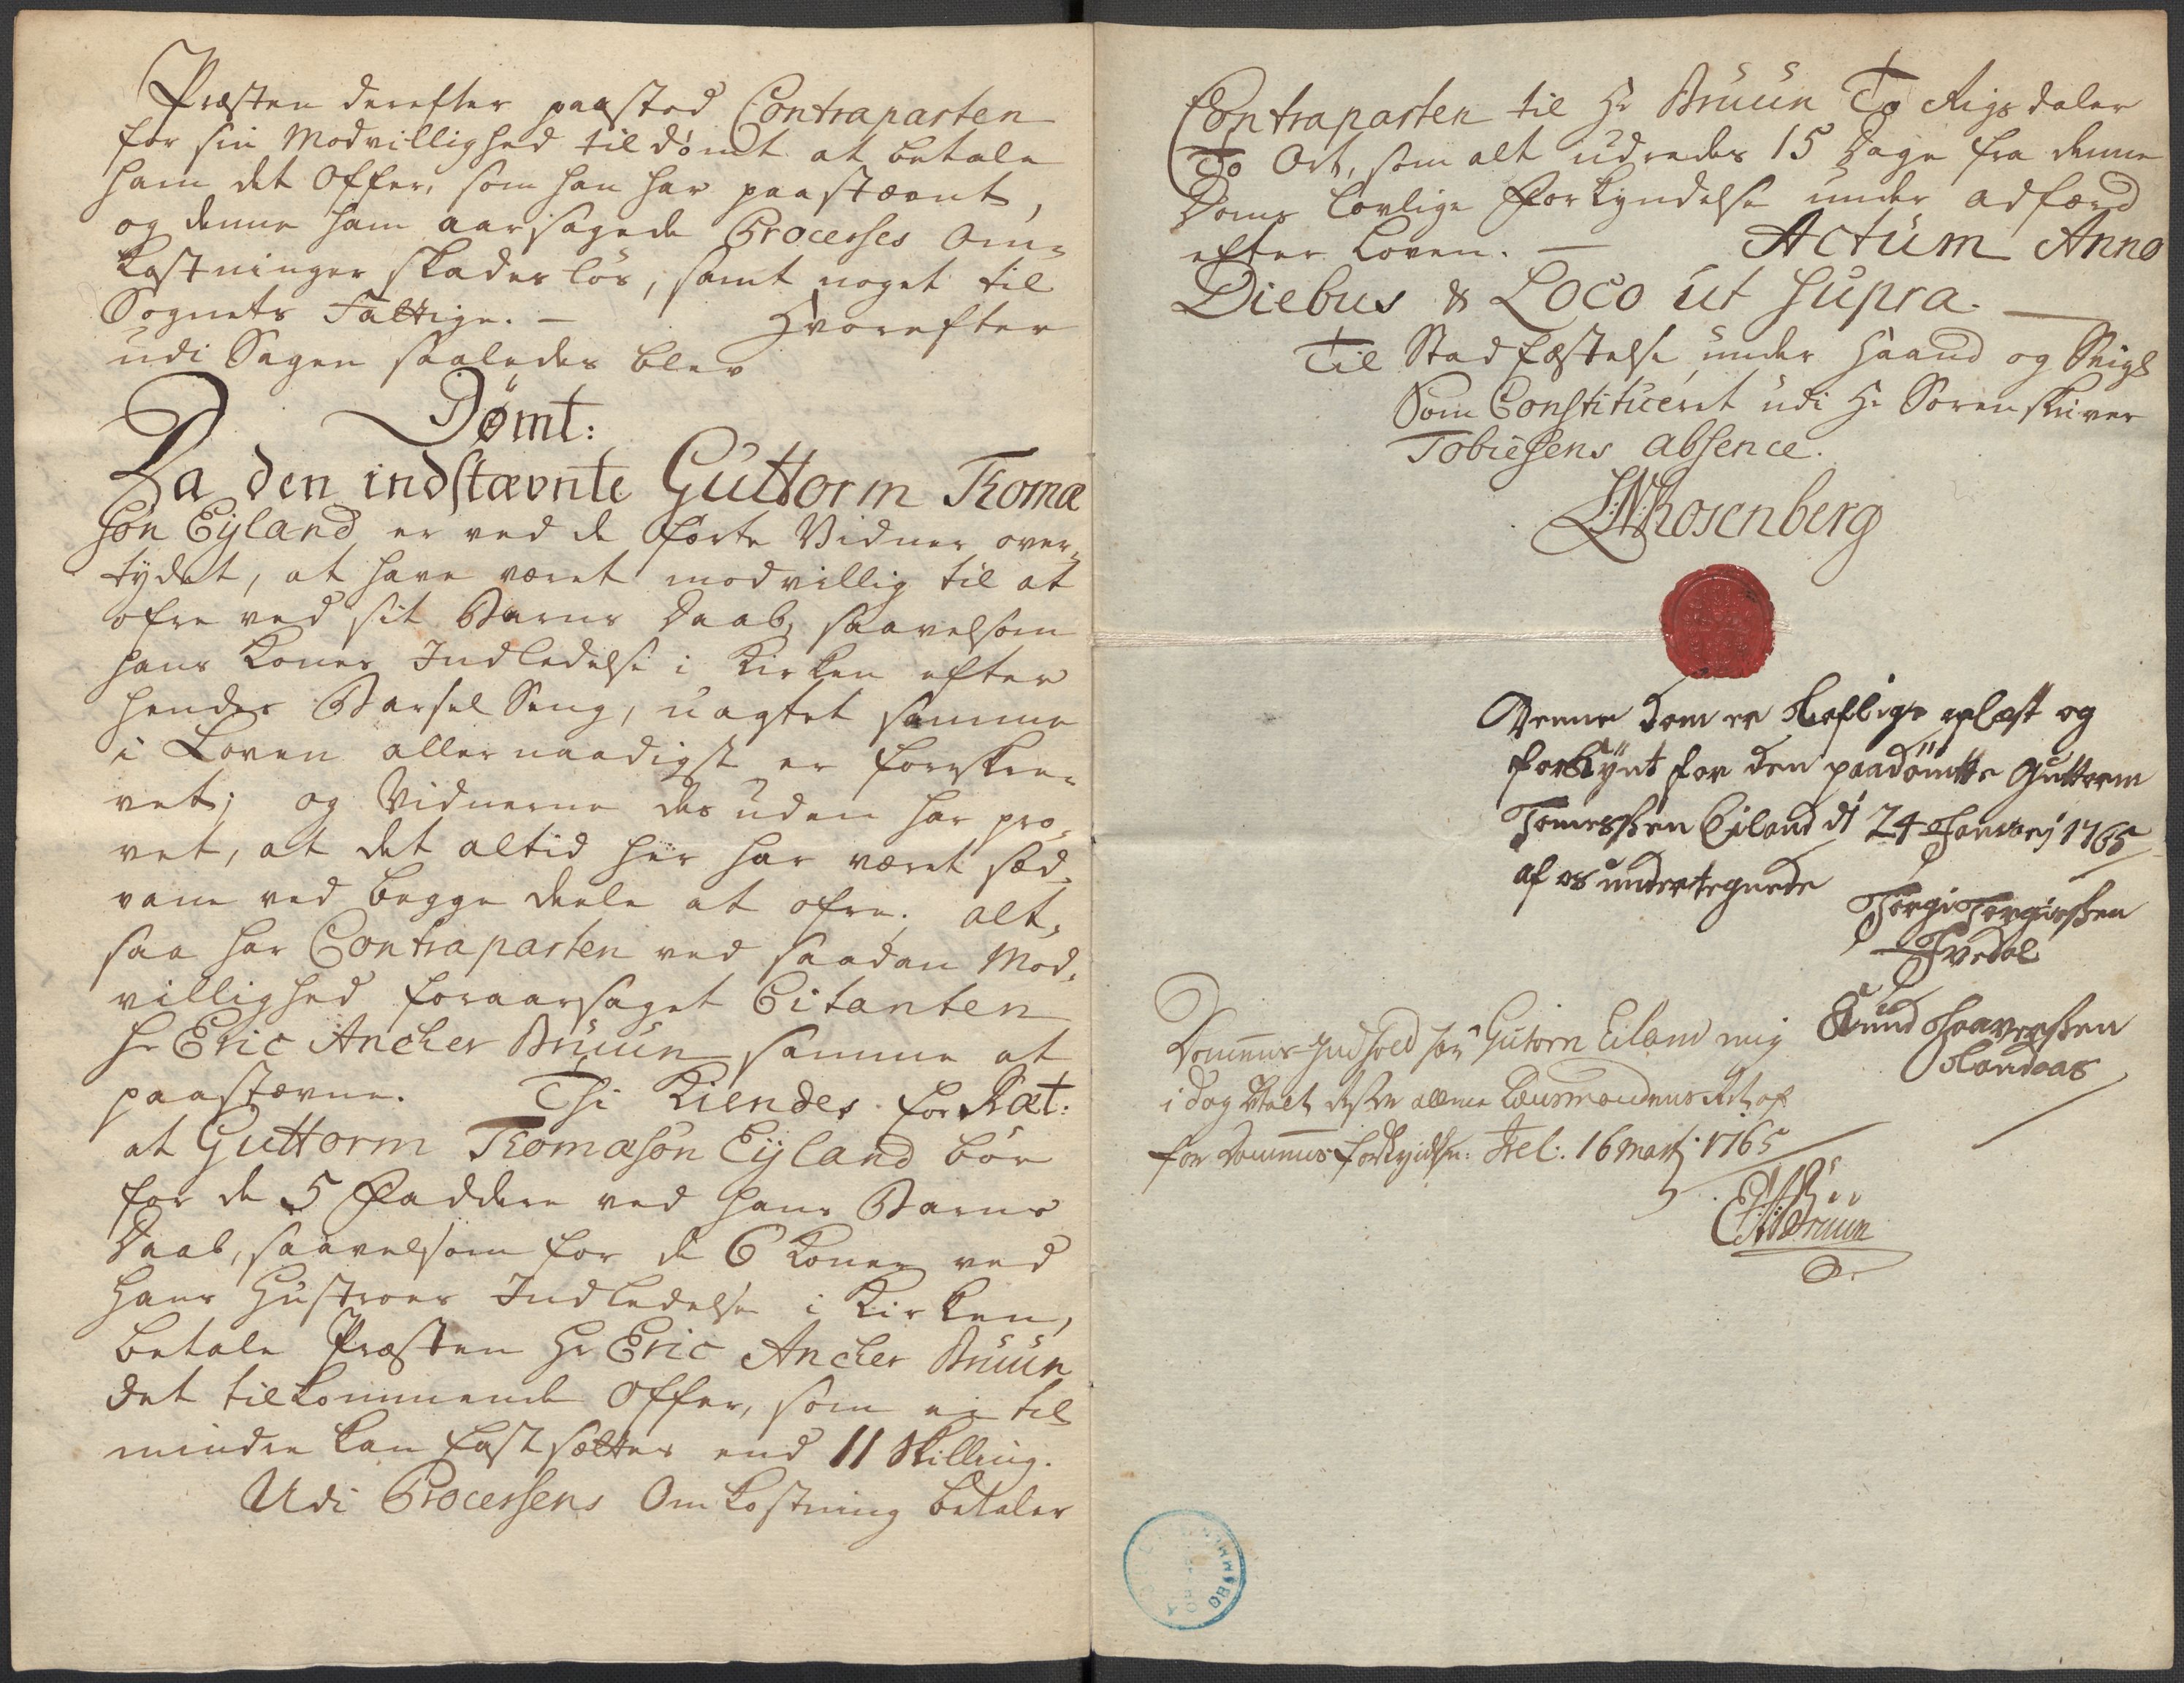 Præsten derefter paastod Contraparten
for sin Modvillighed tildømt at betale
ham det Offer, som han har paastævnt,
og denne ham aarsagede Processes Om=
kostninger skadesløs, samt noget til
Sognets Fattige. — Hvorefter
udi Sagen saaledes blev
Dømt:
Da den indstævnte Guttorm Thomæ
søn Eyland er ved de førte Vidner over=
tydet, at have været modvillig til at
ofre ved sit Barns Daab, saavelsom
hans Kones Indledelse i Kirken efter
hendes BarselSeng, uagtet samme
i Loven allernaadigst er foreskre=
vet; og Vidnerne des uden har pro=
vet, at det altid her har været sæd=
vane ved begge deele at ofre; alt=
saa har Contraparten ved saadan Mod=
villighed foraarsaget Citanten
Hr Eric Ancher Bruun samme at
paastævne. Thi Kiendes for Ræt:
at Guttorm Thomæsøn Eyland bør
for de 5 Faddere ved hans Barns
Daab, saavelsom for de 6 Koner ved
hans Hustroes Indledelse i Kirken,
betale Præsten Hr Eric Ancher Bruun
det tilkommende Offer, som ei til
mindre kan fastsættes end 11 Skilling.
Udi Processens Omkostning betaler
Contraparten til Hr Bruun To Rigsdaler
To Ort, som alt udredes 15 Dage fra denne
Doms lovlige Forkyndelse under adfærd
efter Loven. — Actum Anno
Diebus & Loco ut supra. —
Til Stadfæstelse under Haand og Seigl
Som Constitueret udi Hr Sorenskriver
Tobiesens absence.
LNRosenberg
Denne Dom er Lovlige oplæst og
forkynt for den paadømtte Guttorm
Tomessen Eiland d 24 Januarj 1765
af os undertegnede
Torgi Torgiersen
Tvedal
Knud Haaversen
Olandaas
Dommens Indhold har Gutorn Eiland mig
i dag betalt, alleene Lænsmandens Ret
for Dommens forkyndelse. 16 Marti 1765
EABruun